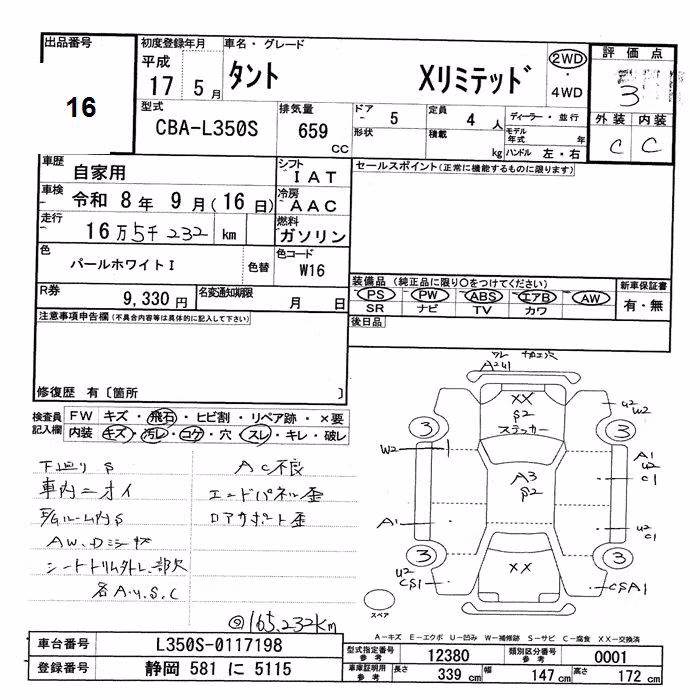 出品番号
16
初度登録年月
平成
17 5 月
車名・グレード
タント Xリミテッド
2WD
・
4WD
評価点
3
外装 内装
C C
型式
CBA-L350S
排気量
659
CC
ドア 5
形状
定員 4 人
積載 kg
ディーラー・並行
モデル年式 年
ハンドル 左・右
車歴
自家用
シフト
IAT
セールスポイント(正常に機能するものに限ります)
車検
令和 8 年 9 月(16 日)
冷房
AAC
走行
16万5千232 km
燃料
ガソリン
色
パールホワイトI
色替
色コード
W16
R券
9,330 円
名変通知期限
月 日
装備品(純正品に限り○をつけてください)
PS PW ABS エアB AW
SR ナビ TV カワ
新車保証書
有・無
後日品
注意事項申告欄(不具合内容等は具体的に記入して下さい)
修復歴 有〔箇所 〕
検査員記入欄
FW キズ・飛石・ヒビ割・リペア跡・×要
内装 キズ・汚レ・コゲ・穴・スレ・キレ・破レ
下廻りS
車内ニオイ
E/Gルーム内S
AW、Dミラーキズ
シートトリム外レ、部欠
各A.U.S.C
AC不良
エンドパネル歪
ロアサポート歪
◎165,232km
A2U1
XX
S2
ステッカー
U2
W2
3
3
W2
A3
S2
A1
U2
C1
A1
U2
C1
3
3
U2
CS1
XX
CSA1
スペア
A－キズ E－エクボ U－凹み W－補修跡 S－サビ C－腐食 XX－交換済
車台番号 L350S-0117198
登録番号 静岡 581 に 5115
型式指定番号 参考 12380
類別区分番号 参考 0001
車庫証明用 参考
長さ 339 cm 幅 147 cm 高さ 172 cm